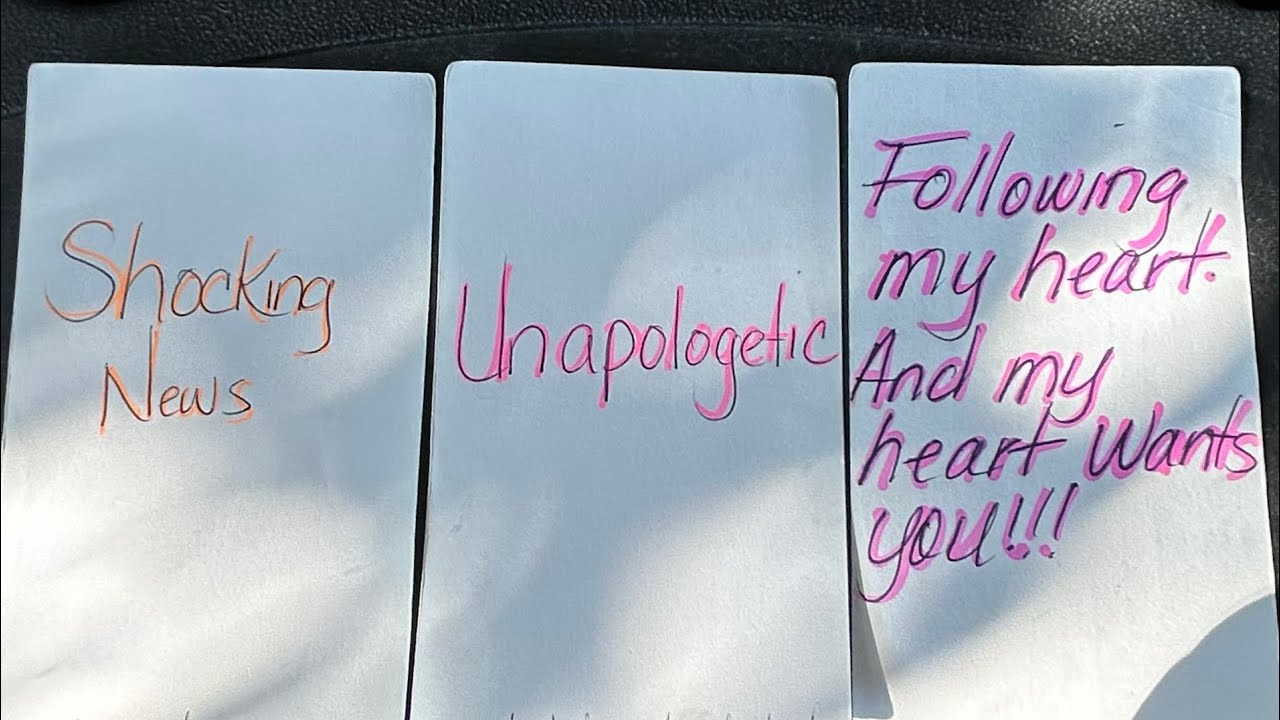 Shocking
News
Unapologetic
Following
my heart.
And my
heart wants
you!!!